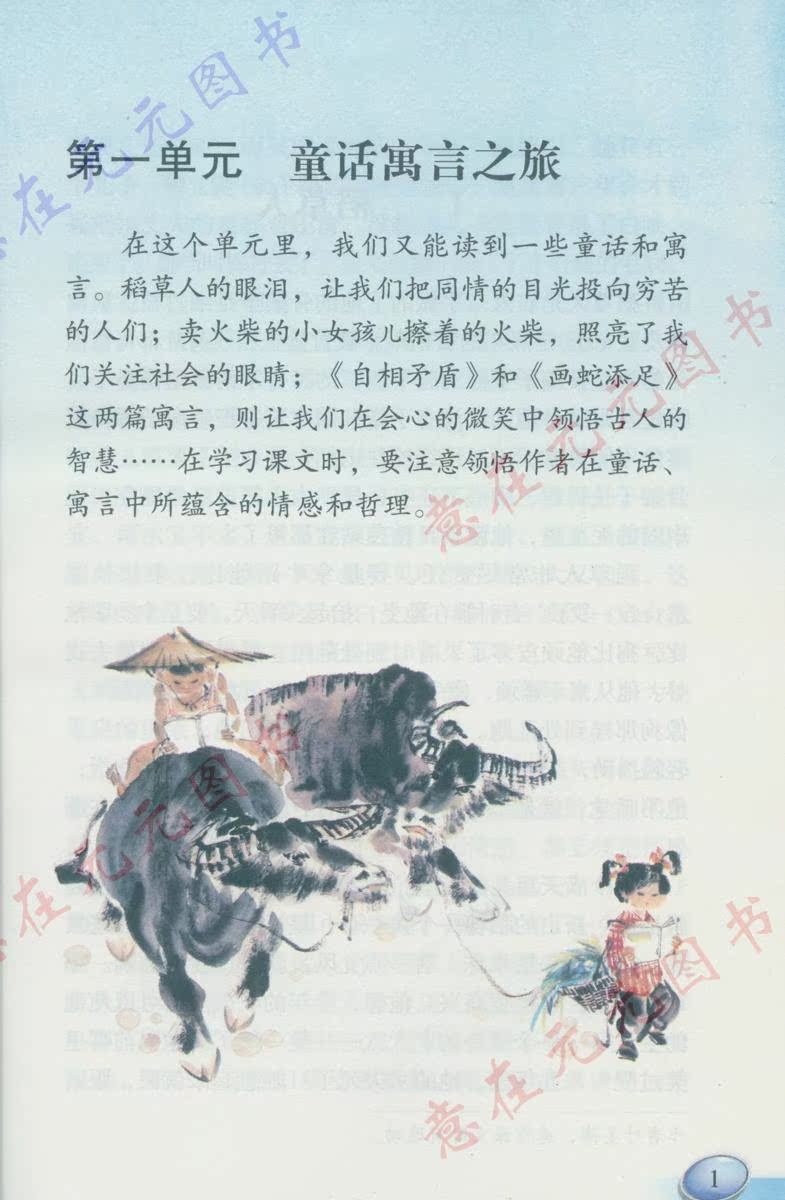 第一单元 童话寓言之旅
在这个单元里，我们又能读到一些童话和寓
言。稻草人的眼泪，让我们把同情的目光投向穷苦
的人们；卖火柴的小女孩儿擦着的火柴，照亮了我
们关注社会的眼睛；《自相矛盾》和《画蛇添足》
这两篇寓言，则让我们在会心的微笑中领悟古人的
智慧……在学习课文时，要注意领悟作者在童话、
寓言中所蕴含的情感和哲理。
意在元元图书
意在元元图书
意在元元图书
意在元元图书
1